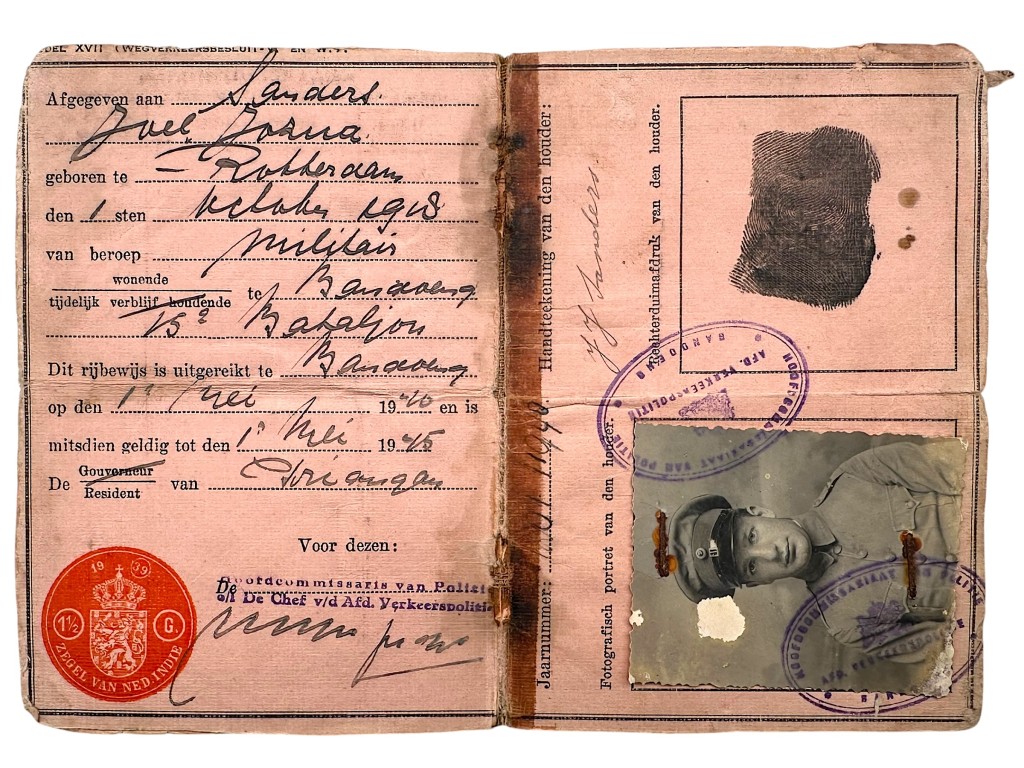 DEL XVII (WEGVERKEERSBESLUIT-
Afgegeven aan Sanders.
Joël Jozua.
geboren te - Rotterdam
den 1 sten October 1918
van beroep militair
wonende
tijdelijk verblijf houdende te Bandoeng
15e Bataljon
Dit rijbewijs is uitgereikt te Bandoeng
op den 1e Mei 1940 en is
mitsdien geldig tot den 1e Mei 1945
De Gouverneur
Resident van Priangan
Voor dezen:
De Hoofdcommissaris van Politie
o/l De Chef v/d Afd. Verkeerspolitie
1939
1½ G.
ZEGEL VAN NED. INDIE
Jaarnummer: 1940.
Handteekening van den houder:
JJ Sanders.
Rechterduimafdruk van den houder.
Fotografisch portret van den houder.
HOOFDCOMMISSARIAAT VAN POLITIE
AFD. VERKEERSPOLITIE
BANDOENG
HOOFDCOMMISSARIAAT VAN POLITIE
AFD.